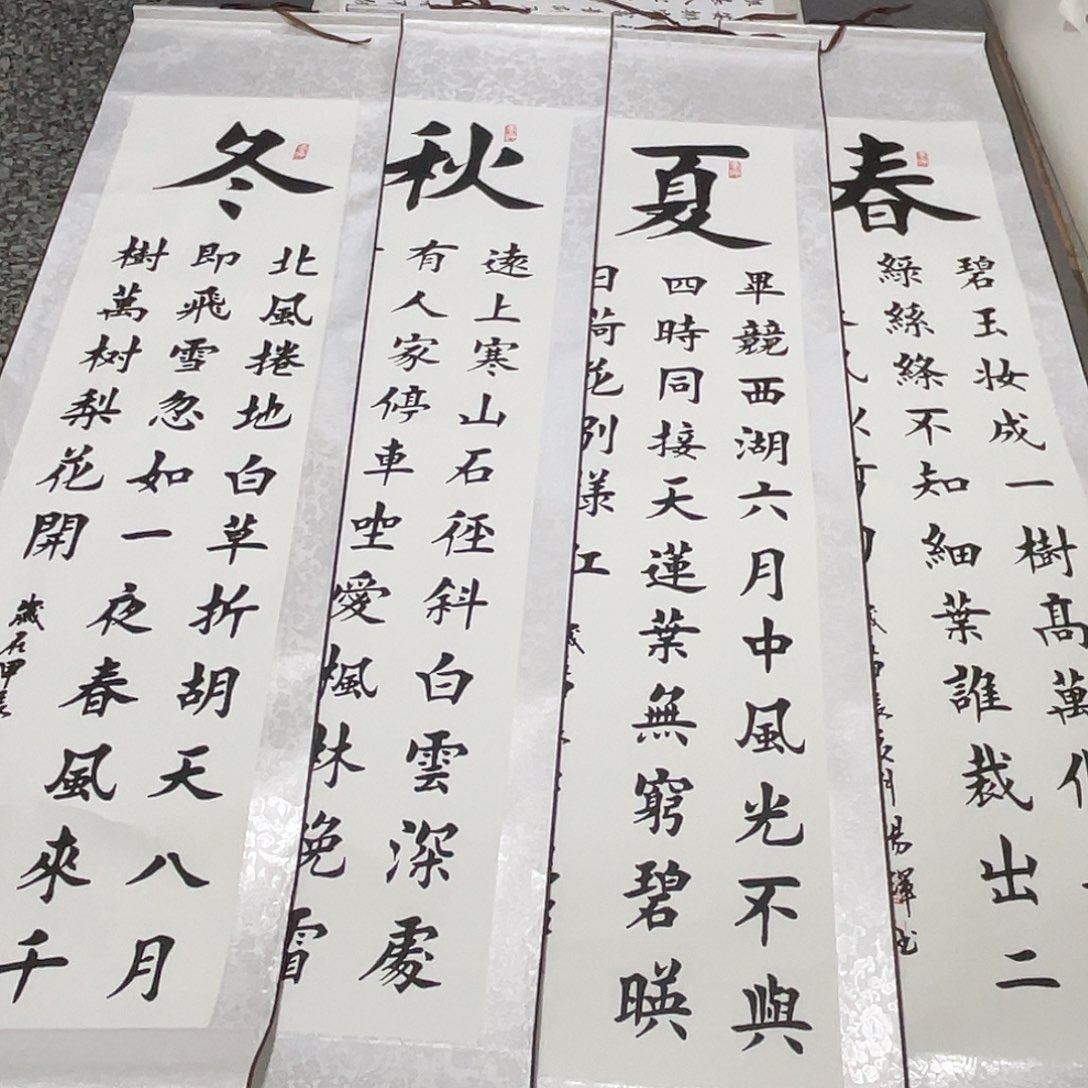 春
碧玉妆成一樹髙萬
綠絲絛不知細葉誰裁出二
夏
畢競西湖六月中風光不與
四時同接天蓮葉無窮碧暎
日荷花别樣红
秋
遠上寒山石徑斜白雲深處
有人家停車坐愛楓林晚霜
冬
北風捲地白草折胡天八月
即飛雪忽如一夜春風來千
樹萬树梨花開
歲在甲辰